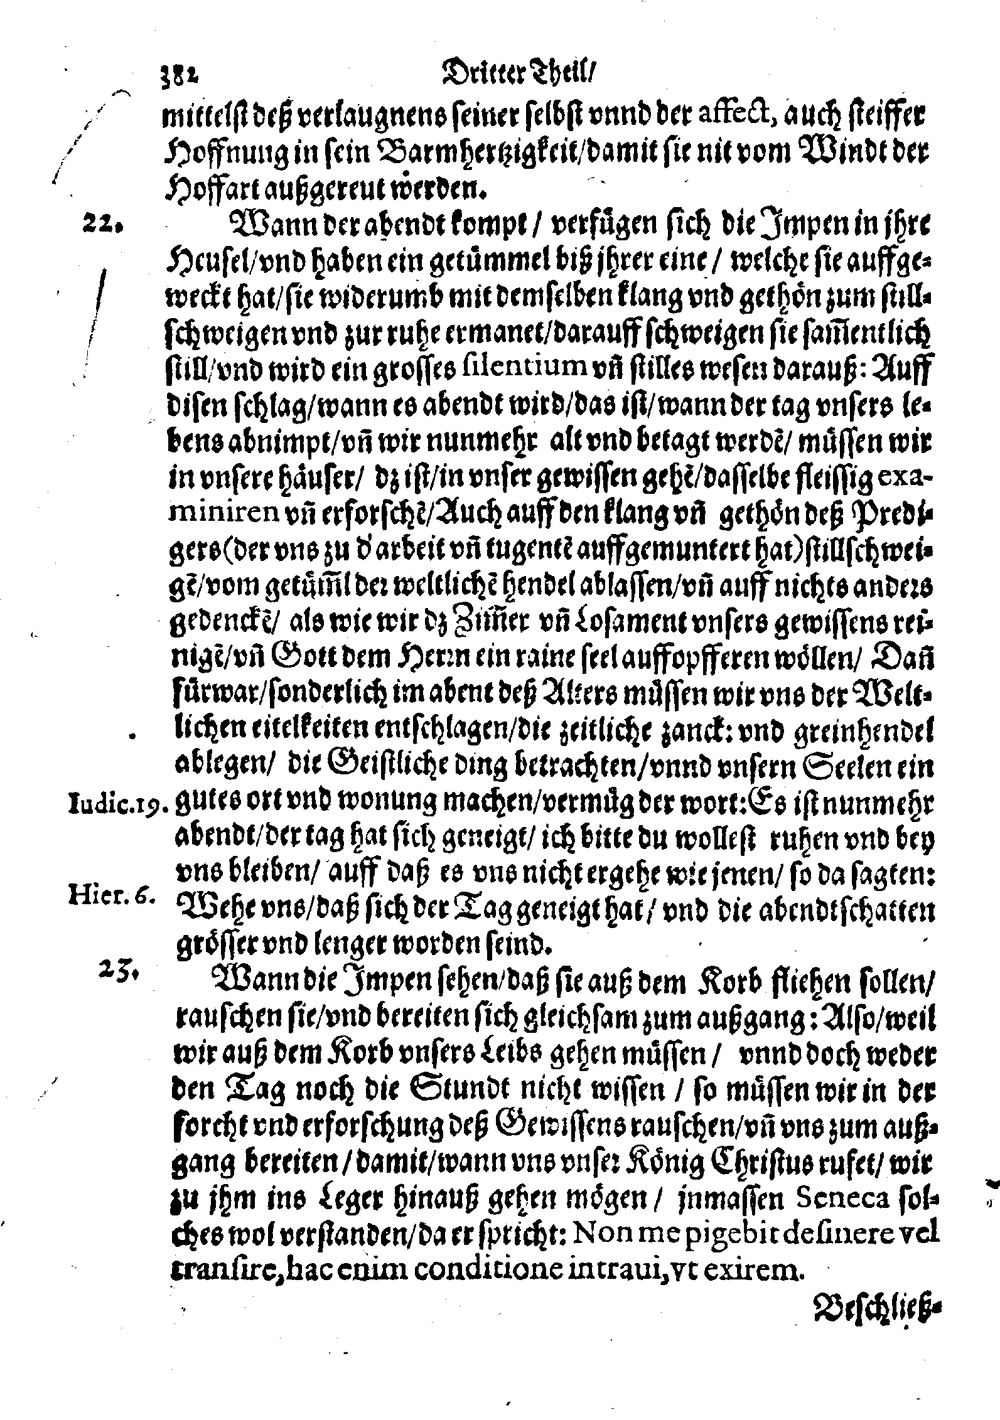 382 Dritter Theil/
mittelst deß verlaugnens seiner selbst vnnd der affect, auch steiffer
Hoffnung in sein Barmhertzigkeit/damit sie nit vom Windt der
Hoffart außgereut werden.
22. Wann der abendt kompt/ verfügen sich die Impen in jhre
Heusel/vnd haben ein getümmel biß jhrer eine/ welche sie auffge-
weckt hat/sie widerumb mit demselben klang vnd gethön zum still-
schweigen vnd zur ruhe ermanet/darauff schweigen sie sam̃entlich
still/vnd wird ein grosses silentium vñ stilles wesen darauß: Auff
disen schlag/wann es abendt wird/das ist/wann der tag vnsers le-
bens abnimpt/vñ wir nunmehr alt vnd betagt werdẽ/ müssen wir
in vnsere häuser/ dz ist/in vnser gewissen gehẽ/dasselbe fleissig exa-
miniren vñ erforschẽ/Auch auff den klang vñ gethön deß Predi-
gers(der vns zu d' arbeit vñ tugentẽ auffgemuntert hat)stillschwei-
gẽ/vom getüm̃l der weltlichẽ hendel ablassen/vñ auff nichts anders
gedenckẽ/ als wie wir dz Zim̃er vñ Losament vnsers gewissens rei-
nigẽ/vñ Gott dem Herrn ein raine seel auffopfferen wöllen/ Dañ
fürwar/sonderlich im abent deß Alters müssen wir vns der Welt-
lichen eitelkeiten entschlagen/die zeitliche zanck: vnd greinhendel
ablegen/ die Geistliche ding betrachten/vnnd vnsern Seelen ein
Iudic.19. gutes ort vnd wonung machen/vermüg der wort:Es ist nunmehr
abendt/der tag hat sich geneigt/ ich bitte du wollest ruhen vnd bey
vns bleiben/ auff daß es vns nicht ergehe wie jenen/ so da sagten:
Hier. 6. Wehe vns/daß sich der Tag geneigt hat/ vnd die abendtschatten
grösser vnd lenger worden seind.
23. Wann die Impen sehen/daß sie auß dem Korb fliehen sollen/
rauschen sie/vnd bereiten sich gleichsam zum außgang: Also/weil
wir auß dem Korb vnsers Leibs gehen müssen/ vnnd doch weder
den Tag noch die Stundt nicht wissen / so müssen wir in der
forcht vnd erforschung deß Gewissens rauschen/vñ vns zum auß-
gang bereiten/damit/wann vns vnser König Christus rufet/ wir
zu jhm ins Leger hinauß gehen mögen/ jnmassen Seneca sol-
ches wol verstanden/da er spricht: Non me pigebit desinere vel
transire,hac enim conditione intraui,vt exirem.
Beschließ-